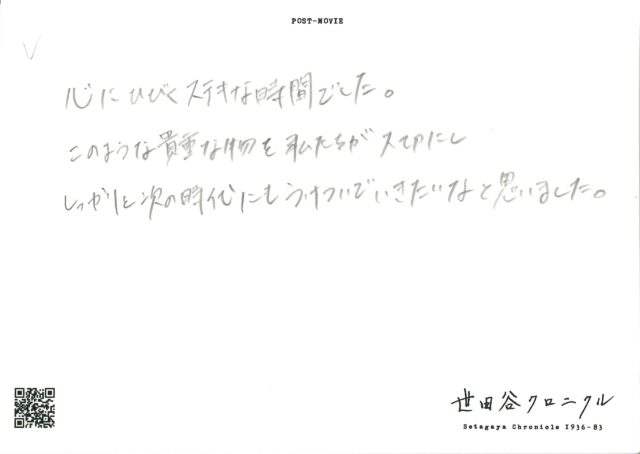 POST-MOVIE
心にひびくステキな時間でした。
このような貴重な物を私たちが大切にし
しっかりと次の時代にもうけついでいきたいなと思いました。
世田谷クロニクル
Setagaya Chronicle 1936-83